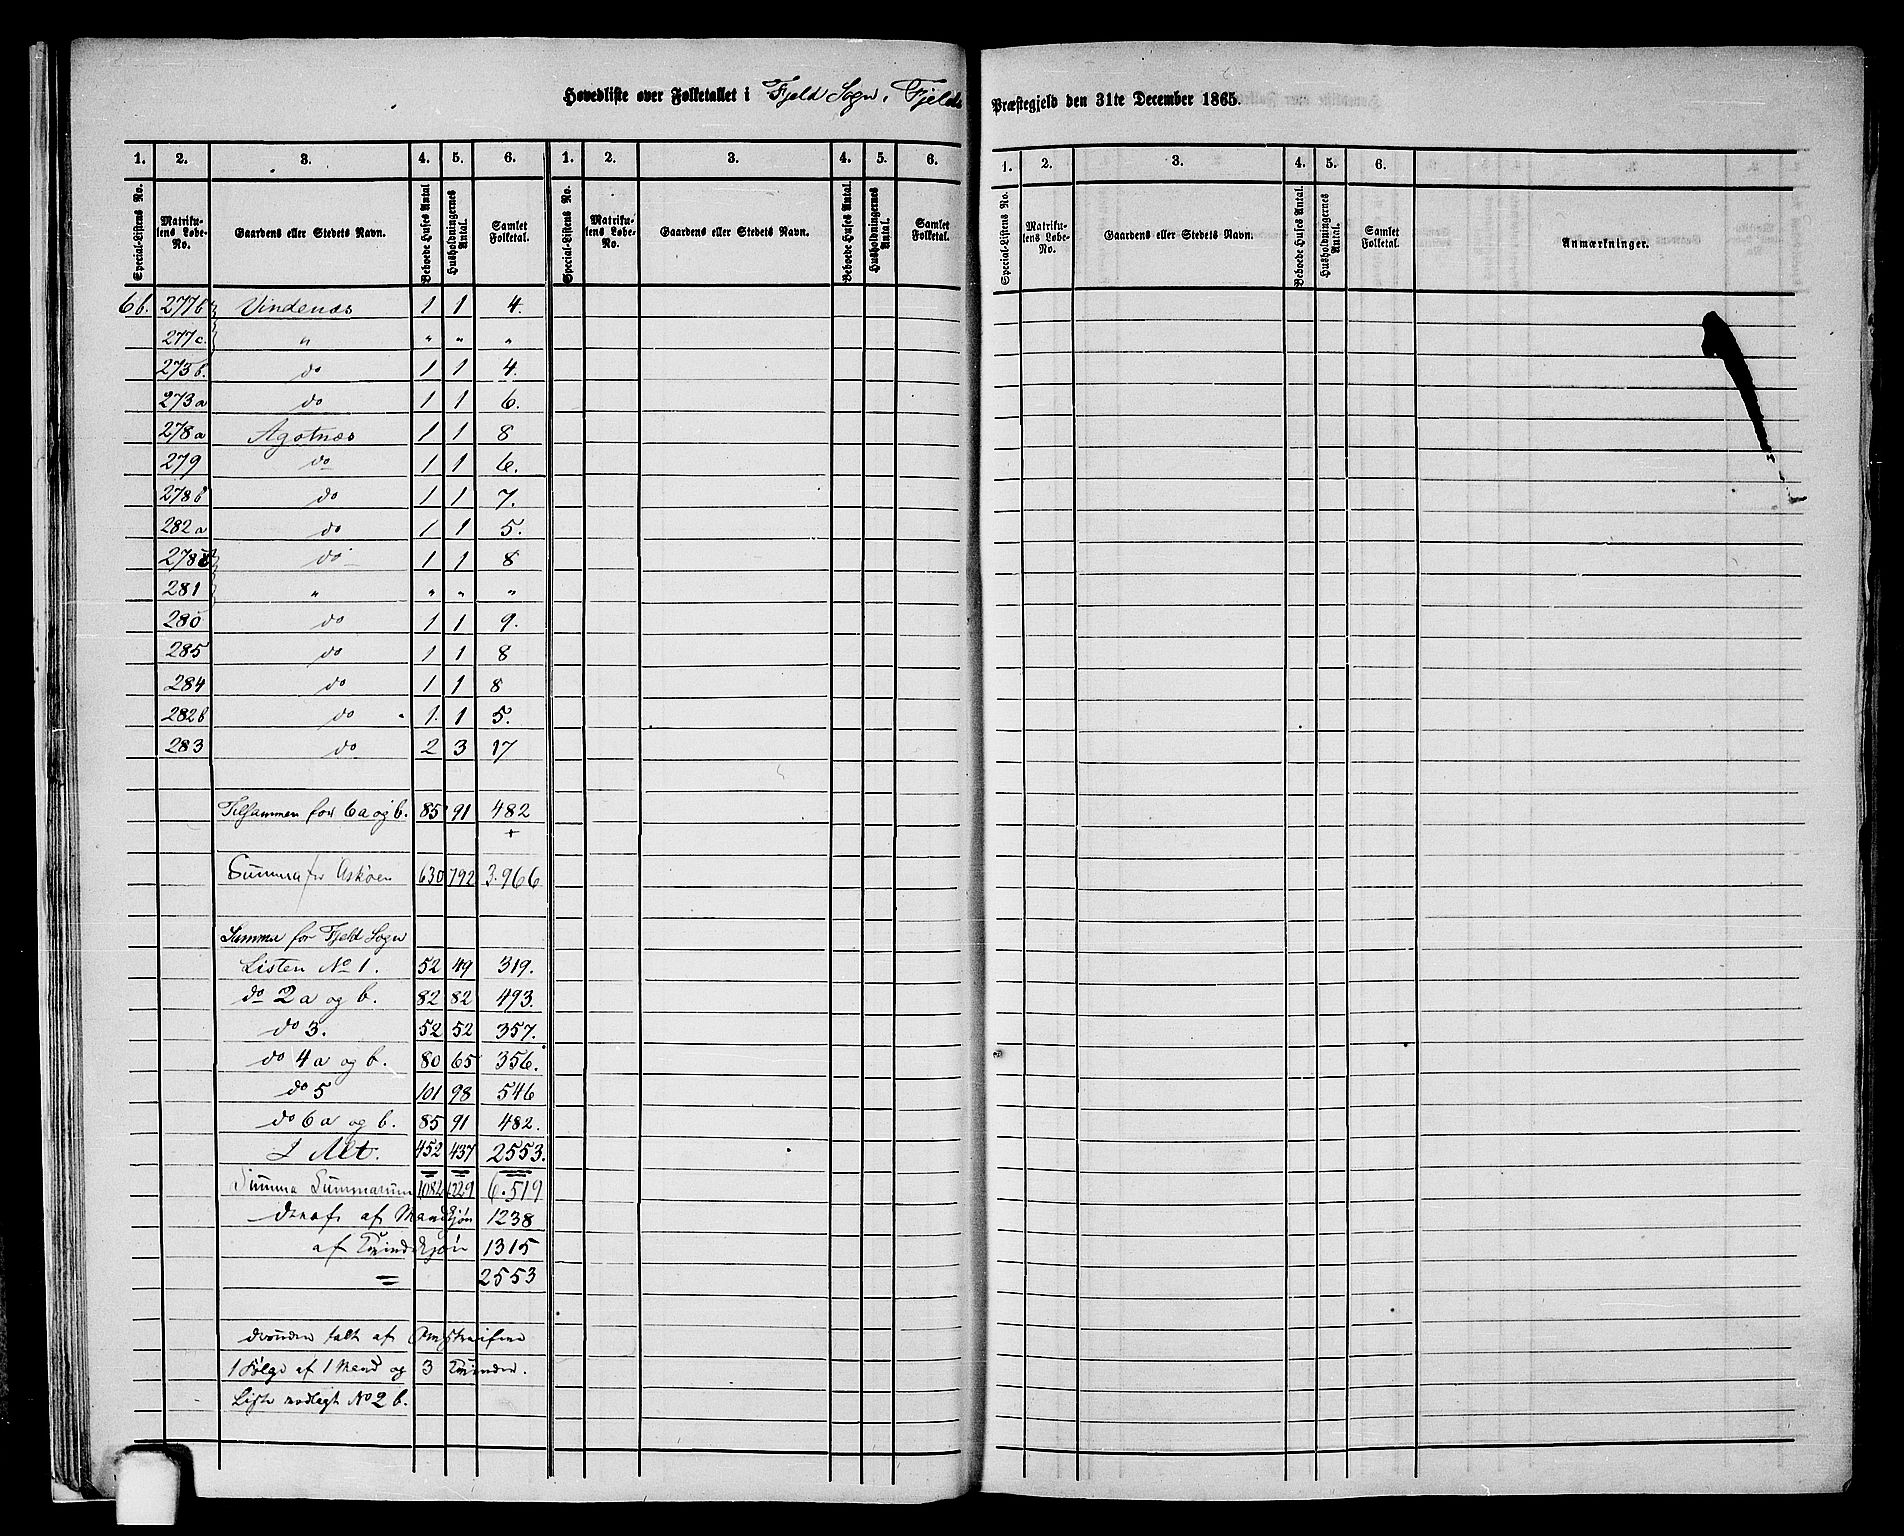 Hovedliste over Folketallet i Fjeld Sogn, Fjelds Præstegjeld den 31te December 1865.
1. 2. 3. 4. 5. 6. 1. 2. 3. 4. 5. 6.
Special-Listens No. Matrikulens Løbe-No. Gaardens eller Stedets Navn. Beboede Huses Antal Husholdningernes Antal. Samlet Folketal. Special-Listens No. Matrikulens Løbe-No. Gaardens eller Stedets Navn. Beboede Huses Antal. Husholdningernes Antal. Samlet Folketal.
6b. 277b Vindenæs 1 1 4.
277c. " " " "
273b. do 1 1 4.
273a do 1 1 6.
278a Agotnæs 1 1 8
279 do 1 1 6.
278b do 1 1 7.
282a do 1 1 5.
278c do 1 1 8
281 " " " "
280 do 1 1 9.
285 do 1 1 8
284 do 1 1 8
282b do 1. 1 5.
283 do 2 3 17
Tilsammen for 6a og b. 85 91 482
+
Summa for Askøen 630 792 3.966
Summa for Fjeld Sogn
Listen No 1. 52 49 319.
do 2a og b. 82 82 493.
do 3. 52 52 357.
do 4a og b. 80 65 356.
do 5 101 98 546
do 6a og b. 85 91 482.
I Alt. 452 437 2553.
Summa Summarum 1082 1229 6.519
deraf af Mandkjøn 1238
af Qvindekjøn 1315
= 2553
desuden talt af Omstreifere
1 Følge af 1 Mand og 3 Qvinder.
Liste vedlagt No 2 b.
1. 2. 3. 4. 5. 6.
Special-Listens No. Matrikulens Løbe-No. Gaardens eller Stedets Navn. Beboede Huses Antal. Husholdningernes Antal. Samlet Folketal. Anmærkninger.